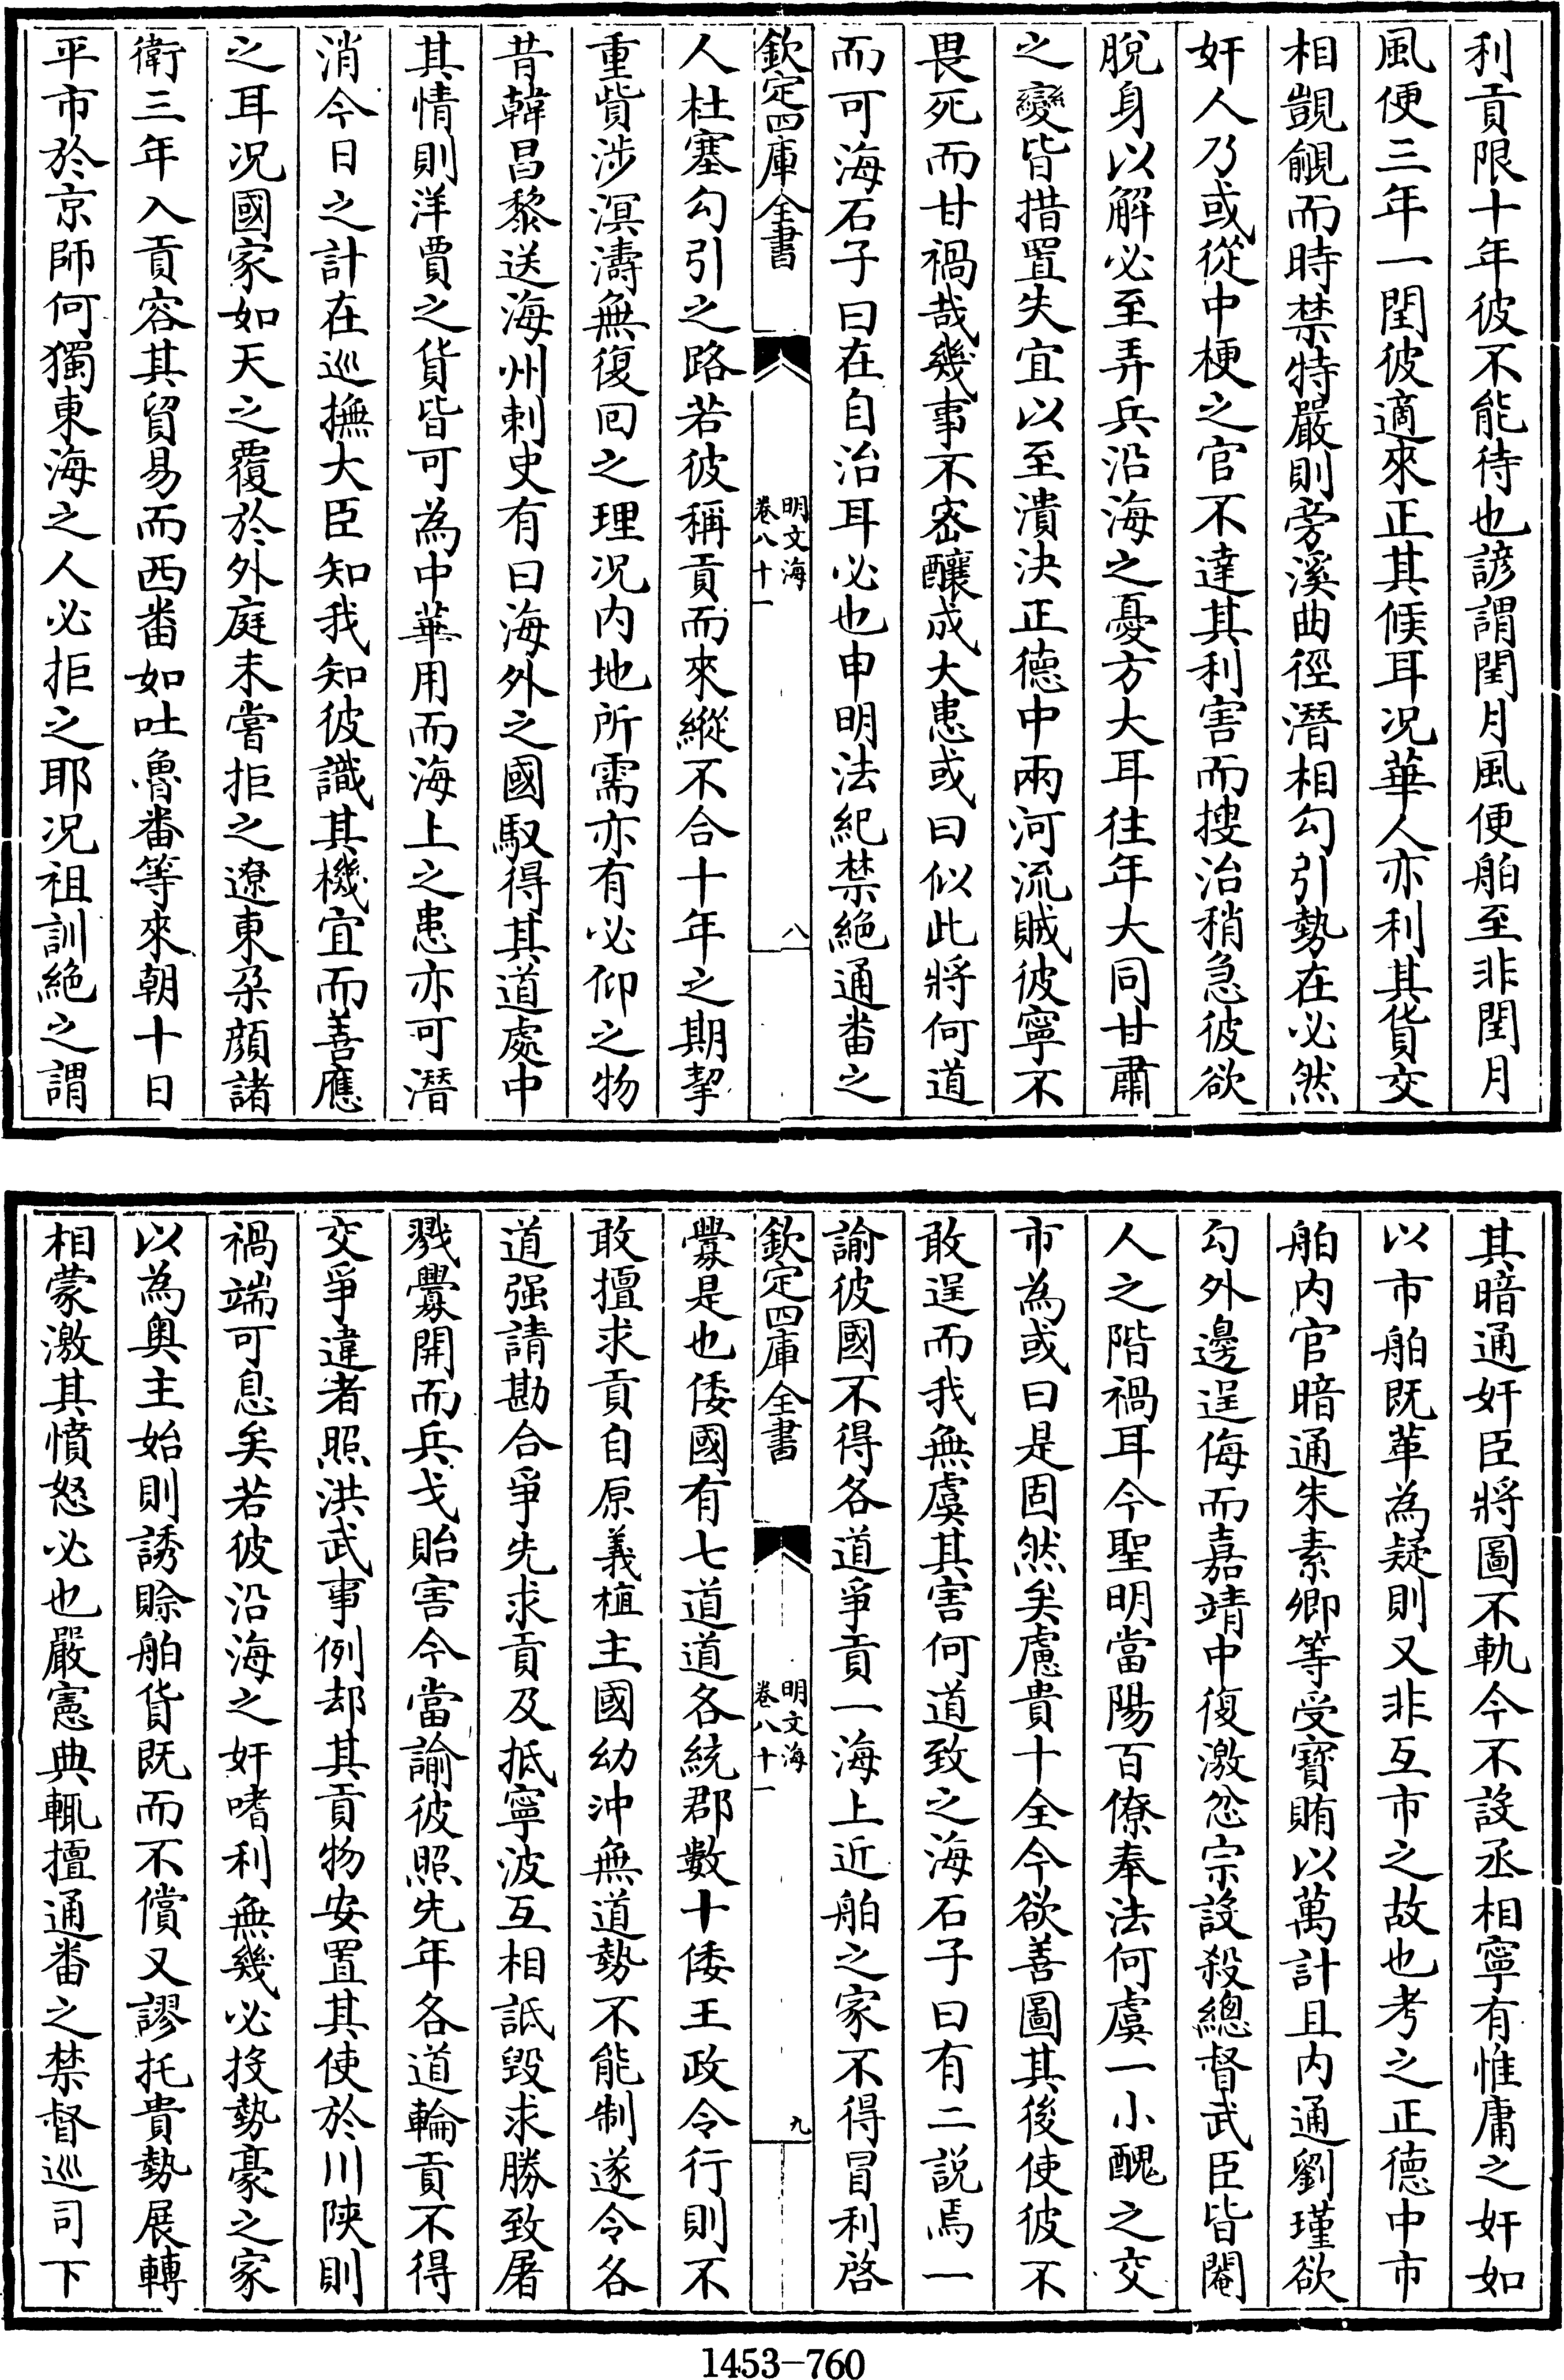 利貢限十年彼不能待也諺謂閏月風便舶至非閏月
風便三年一閏彼適來正其候耳况華人亦利其貨交
相覬覦而時禁特嚴則旁溪曲徑潛相勾引勢在必然
奸人乃或從中梗之官不達其利害而搜治稍急彼欲
脫身以解必至弄兵沿海之憂方大耳往年大同甘肅
之變皆措置失宜以至潰決正德中兩河流賊彼寧不
畏死而甘禍哉幾事不密釀成大患或曰似此將何道
而可海石子曰在自治耳必也申明法紀禁絶通畨之
欽定四庫全書
明文海
卷八十一
八
人杜塞勾引之路若彼稱貢而來縱不合十年之期挈
重貲涉溟濤無復回之理况内地所需亦有必仰之物
昔韓昌黎送海州刺史有曰海外之國馭得其道處中
其情則洋賈之貨皆可為中華用而海上之患亦可潛
消今日之計在巡撫大臣知我知彼識其機宜而善應
之耳况國家如天之覆於外庭未嘗拒之遼東朶顔諸
衛三年入貢容其貿易而西畨如吐魯畨等來朝十日
平市於京師何獨東海之人必拒之耶况祖訓絶之謂
其暗通奸臣將圖不軌今不設丞相寧有惟庸之奸如
以市舶既革為疑則又非互市之故也考之正德中市
舶内官暗通朱素卿等受寳賄以萬計且内通劉瑾欲
勾外邊逞侮而嘉靖中復激忿宗設殺總督武臣皆閹
人之階禍耳今聖明當陽百僚奉法何虞一小醜之交
市為或曰是固然矣慮貴十全今欲善圖其後使彼不
敢逞而我無虞其害何道致之海石子曰有二説焉一
諭彼國不得各道爭貢一海上近舶之家不得冒利啓
欽定四庫全書
明文海
卷八十一
九
釁是也倭國有七道道各統郡數十倭王政令行則不
敢擅求貢自原義植主國幼冲無道勢不能制遂令各
道强請勘合爭先求貢及抵寧波互相詆毀求勝致屠
戮釁開而兵戈貽害今當諭彼照先年各道輪貢不得
交爭違者照洪武事例却其貢物安置其使於川陜則
禍端可息矣若彼沿海之奸嗜利無幾必投勢豪之家
以為奥主始則誘賒舶貨既而不償又謬托貴勢展轉
相蒙激其憤怒必也嚴憲典輒擅通畨之禁督巡司下
1453-760